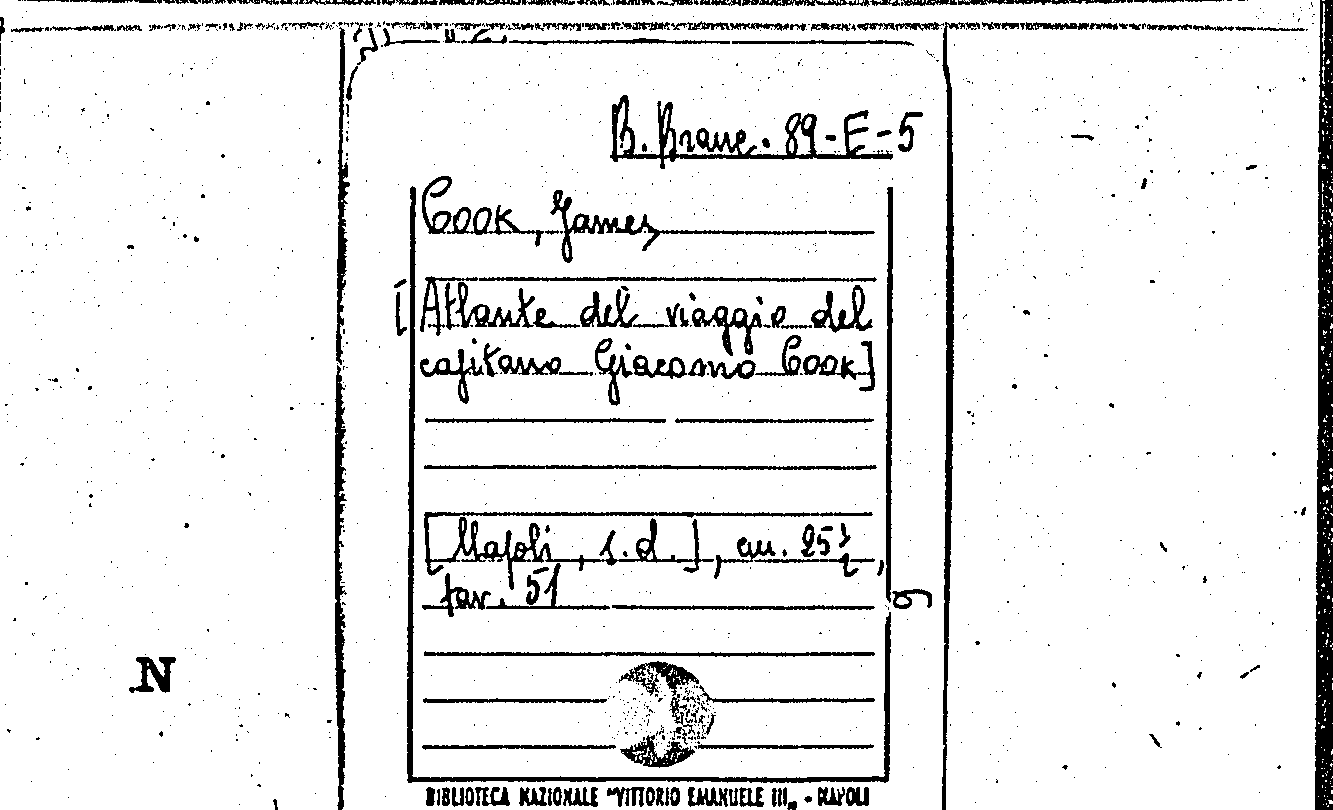 B. Branc. 89-E-5
Cook, James,
[Atlante del viaggio del
capitano Giacomo Cook]
[Napoli, s.d.], cm. 25½,
tav. 51
N
BIBLIOTECA NAZIONALE "VITTORIO EMANUELE III„ - NAPOLI